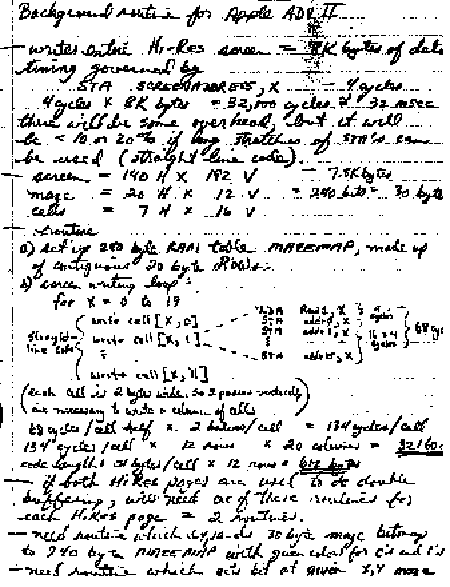 Background routine for Apple ADR II
— writes entire Hi-Res screen = 8K bytes of data
timing governed by
STA SCREENADDRESS, X — 4 cycles
4 cycles × 8K bytes = 32,000 cycles ≈ 32 msec
there will be some overhead, but it will
be ≈ 10 or 20% if long stretches of STA's can
be used (straight line code).
— screen = 140 H × 192 V — 7.5K bytes
maze = 20 H × 12 V = 240 bits = 30 byte
cells = 7 H × 16 V
— routine
a) set up 240 byte RAM table MAZEMAP, made up
of contiguous 20 byte ROWs.
b) screen writing loop:
for X = 0 to 19
write cell [X, 0]
write cell [X, 1]
write cell [X, 11]
straight-
line code
LDA Row 1, X
STA addr 1, X
STA addr 2, X
STA addr 15, X
16 × 4
cycles
68 cyc
(each cell is 2 bytes wide, so 2 passes
are necessary to write a column of cells)
68 cycles/cell half × 2 halves/cell = 134 cycles/cell
134 cycles/cell × 12 rows × 20 columns = 32160
code length = 51 bytes/cell × 12 rows = 612 bytes
— if both HiRes pages are used to do double
buffering, will need one of these routines for
each HiRes page = 2 routines.
— need routine which expands 30 byte maze bitmap
to 240 byte MAZEMAP with given color for 0's and 1's
— need routine which gets bit at given X,Y maze